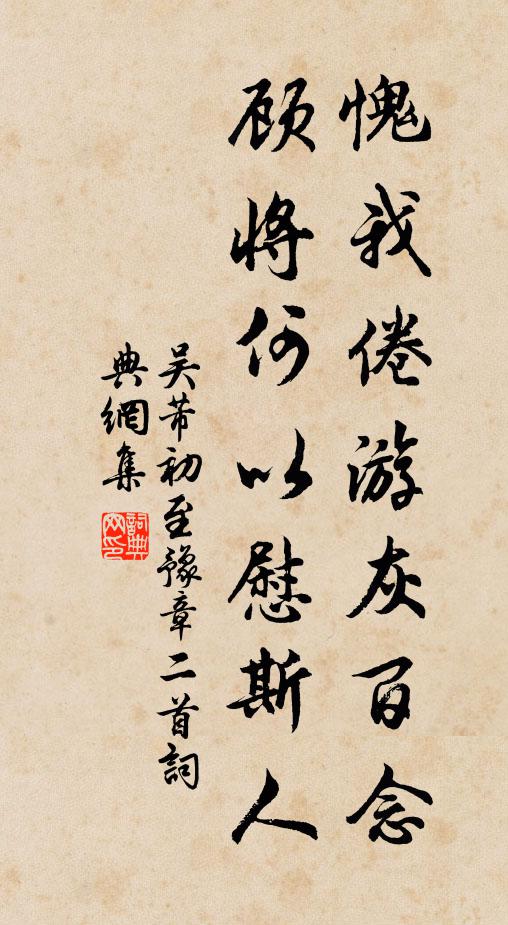 愧我倦游灰百念
顾将何以慰斯人
吴芾初至豫章二首詞
典網集
詞典
网印